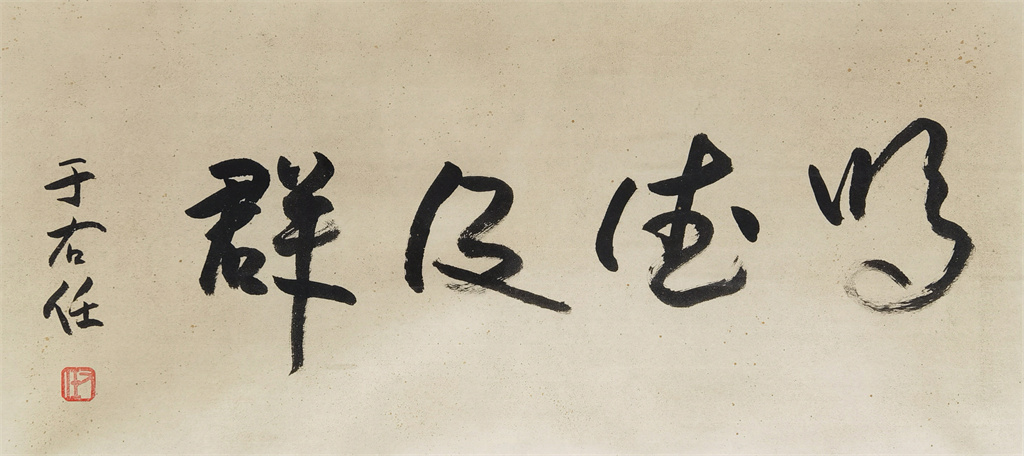 明德及群
于右任